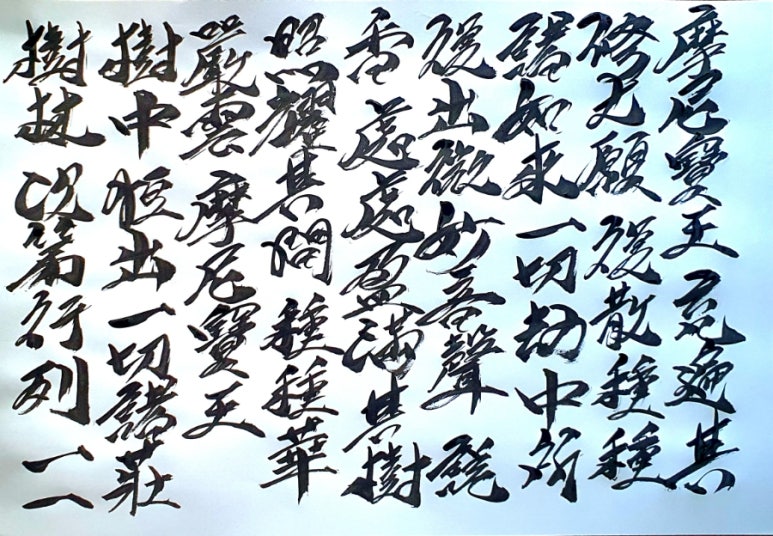 樹林 次第行列 一一
樹中恒出一切諸莊
嚴雲 摩尼寶王
照耀其間 種種華
香 處處盈滿 其樹
復出微妙音聲 說
諸如來 一切劫中所
修大願 復散種種
摩尼寶王 充遍其